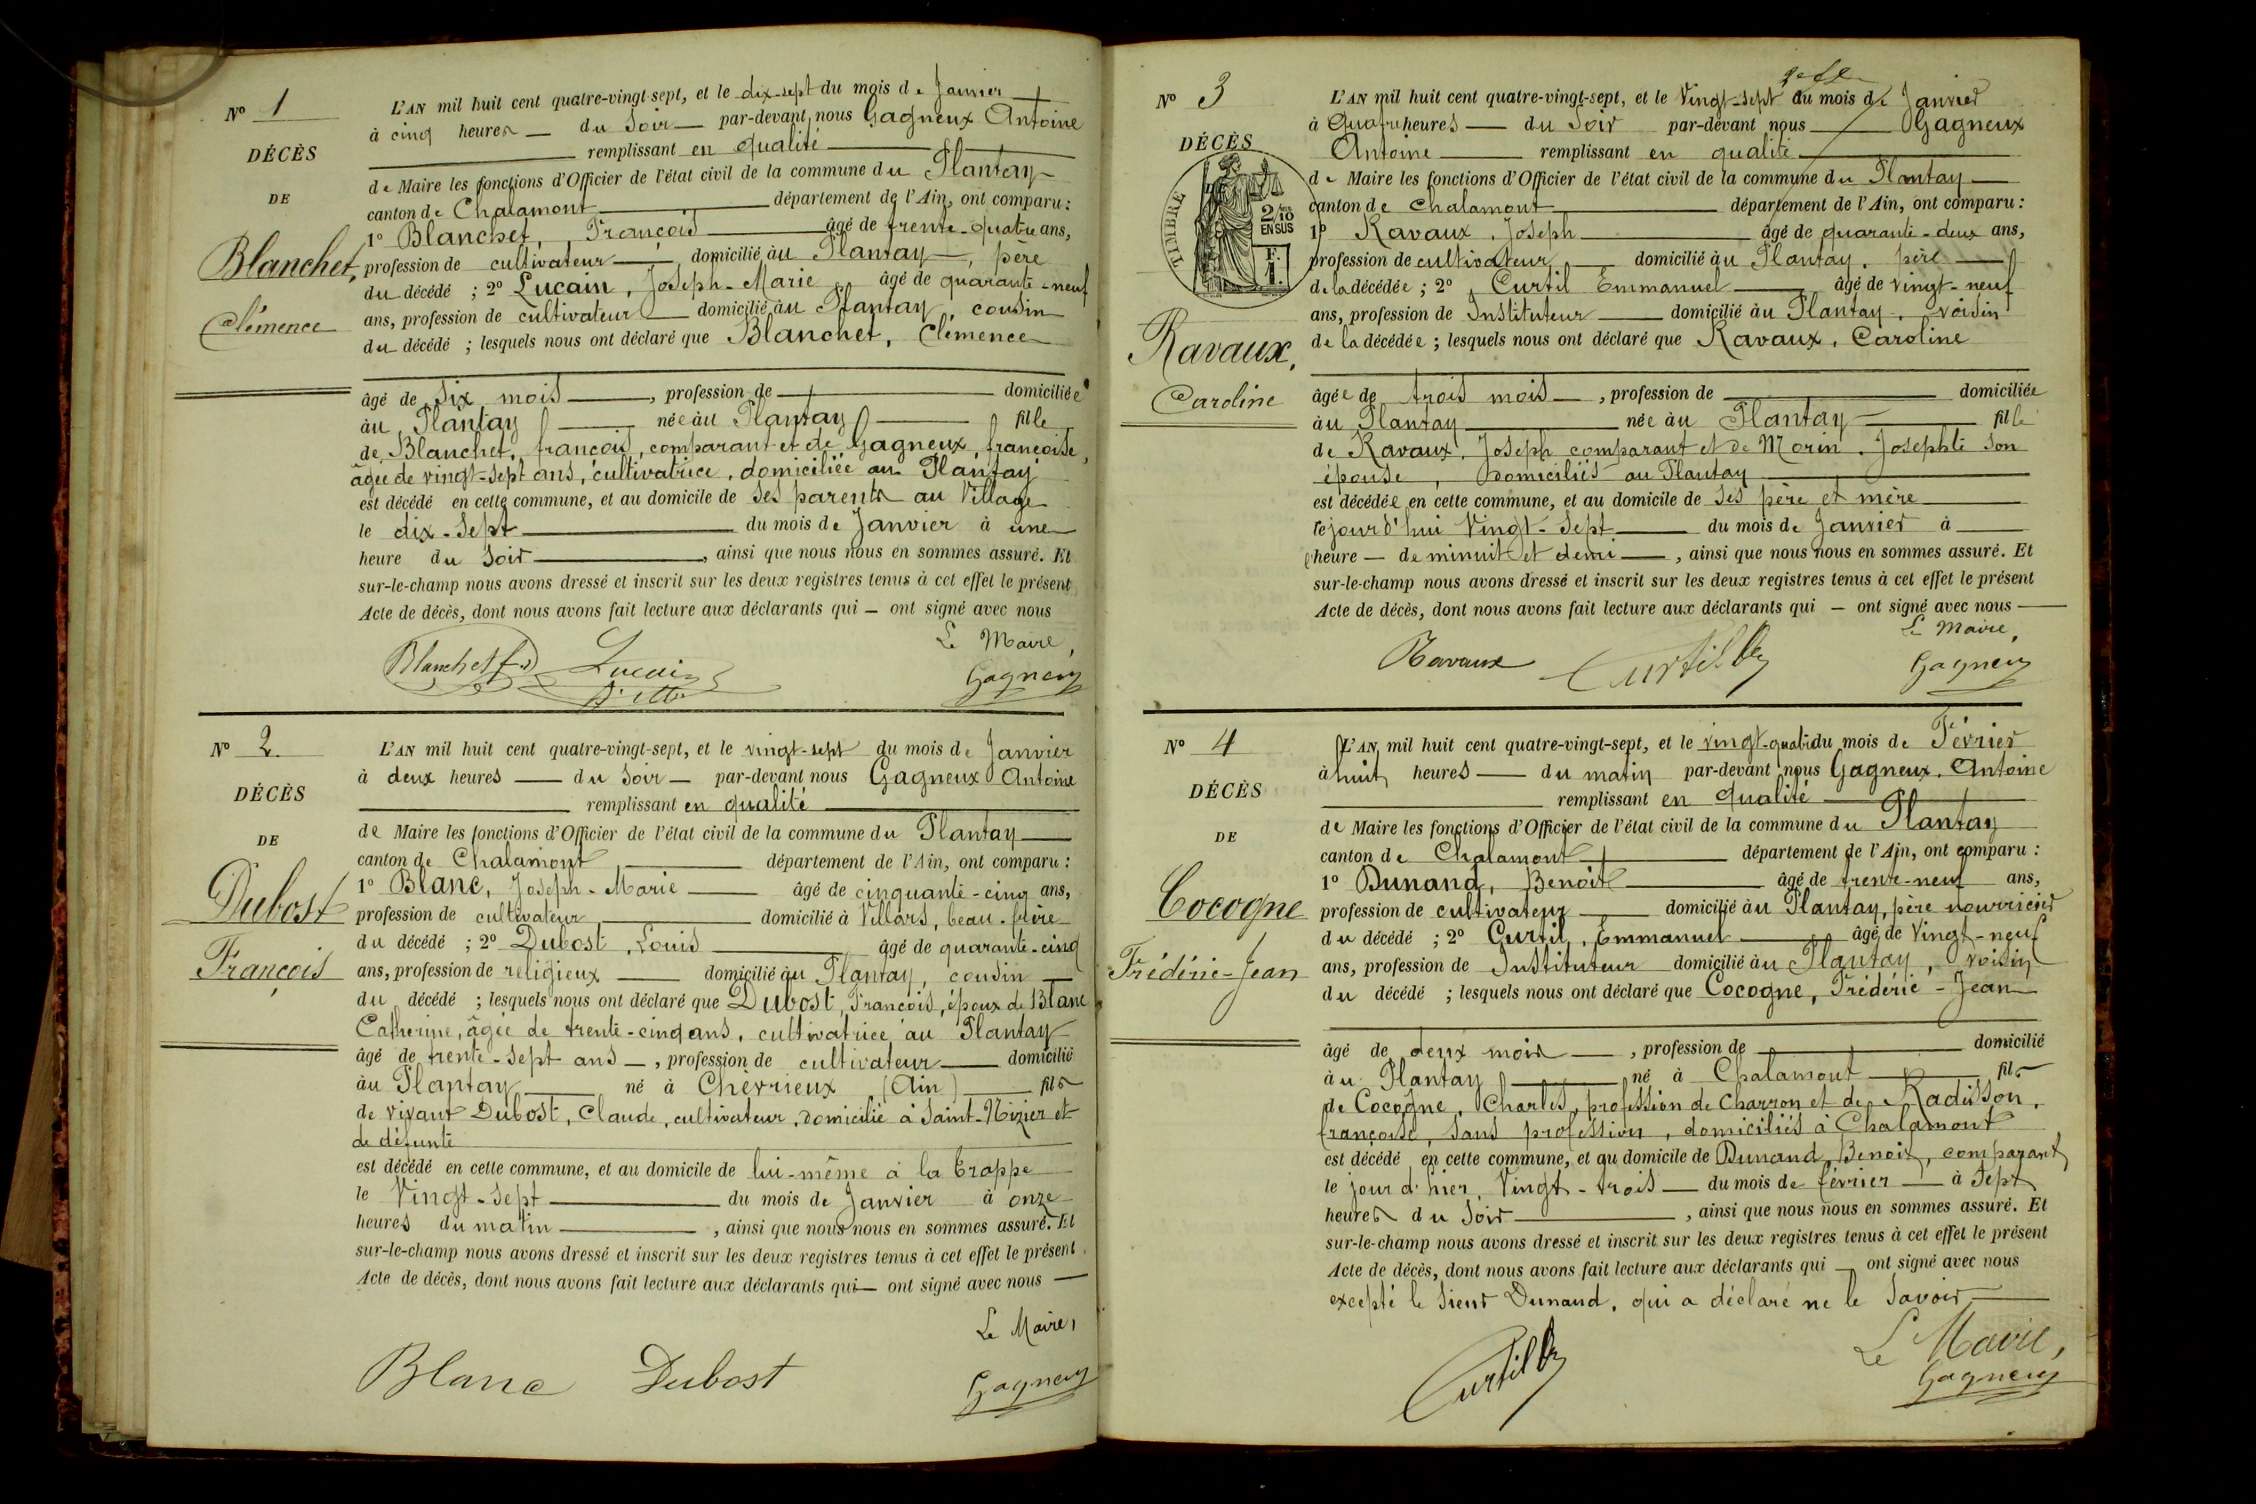 N° 1
DÉCÈS
DE
Blanchet,
Clémence
L'AN mil huit cent quatre-vingt-sept, et le dix-sept du mois de Janvier
à cinq heures du Soir par-devant nous Gagneux Antoine
remplissant en qualité
de Maire les fonctions d'Officier de l'état civil de la commune du Plantay
canton de Chalamont département de l'Ain, ont comparu :
1° Blanchet, François âgé de trente-quatre ans,
profession de cultivateur domicilié au Plantay, père
du décédé ; 2° Lucain, Joseph-Marie âgé de quarante-neuf
ans, profession de cultivateur domicilié au Plantay, cousin
du décédé ; lesquels nous ont déclaré que Blanchet, Clémence
âgé de Six mois, profession de domiciliée
au Plantay née au Plantay fille
de Blanchet, françois, comparant et de Gagneux, françoise,
âgée de vingt-sept ans, cultivatrice, domiciliée au Plantay
est décédé en cette commune, et au domicile de Ses parents au Village
le dix-Sept du mois de Janvier à une
heure du Soir, ainsi que nous nous en sommes assuré. Et
sur-le-champ nous avons dressé et inscrit sur les deux registres tenus à cet effet le présent
Acte de décès, dont nous avons fait lecture aux déclarants qui — ont signé avec nous
Le Maire,
Blanchet Lucain Gagneux
N° 2.
DÉCÈS
DE
Dubost
François
L'AN mil huit cent quatre-vingt-sept, et le vingt-sept du mois de Janvier
à deux heures du Soir par-devant nous Gagneux Antoine
remplissant en qualité
de Maire les fonctions d'Officier de l'état civil de la commune du Plantay
canton de Chalamont département de l'Ain, ont comparu :
1° Blanc, Joseph-Marie âgé de cinquante-cinq ans,
profession de cultivateur domicilié à Villars, beau-frère
du décédé ; 2° Dubost, Louis âgé de quarante-cinq
ans, profession de religieux domicilié au Plantay, cousin
du décédé ; lesquels nous ont déclaré que Dubost, François, époux de Blanc
Catherine, âgée de trente-cinq ans, cultivatrice au Plantay
âgé de trente-sept ans, profession de cultivateur domicilié
au Plantay né à Chevrieux (Ain) fils
de vivant Dubost, Claude, cultivateur, domicilié à Saint-Nizier et
de défunte
est décédé en cette commune, et au domicile de lui-même à la Trappe
le Vingt-Sept du mois de Janvier à onze
heures du matin, ainsi que nous nous en sommes assuré. Et
sur-le-champ nous avons dressé et inscrit sur les deux registres tenus à cet effet le présent
Acte de décès, dont nous avons fait lecture aux déclarants qui — ont signé avec nous
Le Maire,
Blanc Dubost Gagneux
N° 3
DÉCÈS
TIMBRE
2/10
EN SUS
F.
1.
Ravaux,
Caroline
L'AN mil huit cent quatre-vingt-sept, et le Vingt-sept du mois de Janvier
à Quatre heures du Soir par-devant nous Gagneux
Antoine remplissant en qualité
de Maire les fonctions d'Officier de l'état civil de la commune du Plantay
canton de Chalamont département de l'Ain, ont comparu :
1° Ravaux, Joseph âgé de quarante-deux ans,
profession de cultivateur domicilié au Plantay, père
de la décédée ; 2° Curtil Emmanuel âgé de vingt-neuf
ans, profession de Instituteur domicilié au Plantay, voisin
de la décédée ; lesquels nous ont déclaré que Ravaux, Caroline
âgée de trois mois, profession de domiciliée
au Plantay née au Plantay fille
de Ravaux, Joseph comparant et de Morin, Josephte son
épouse, domiciliés au Plantay
est décédée en cette commune, et au domicile de Ses père et mère
le jourd'hui Vingt-Sept du mois de Janvier à
l'heure — de minuit et demi, ainsi que nous nous en sommes assuré. Et
sur-le-champ nous avons dressé et inscrit sur les deux registres tenus à cet effet le présent
Acte de décès, dont nous avons fait lecture aux déclarants qui — ont signé avec nous
Le Maire,
Ravaux Curtil Gagneux
N° 4
DÉCÈS
DE
Cocogne
Frédéric-Jean
L'AN mil huit cent quatre-vingt-sept, et le vingt-quatre du mois de Février
à huit heures du matin par-devant nous Gagneux, Antoine
remplissant en qualité
de Maire les fonctions d'Officier de l'état civil de la commune du Plantay
canton de Chalamont département de l'Ain, ont comparu :
1° Dunand, Benoit âgé de trente-neuf ans,
profession de cultivateur domicilié au Plantay, père nourricier
du décédé ; 2° Curtil, Emmanuel âgé de Vingt-neuf
ans, profession de Instituteur domicilié au Plantay, voisin
du décédé ; lesquels nous ont déclaré que Cocogne, Frédéric-Jean
âgé de deux mois, profession de domicilié
au Plantay né à Chalamont fils
de Cocogne, Charles, profession de Charron et de Radisson,
françoise, sans profession, domiciliés à Chalamont
est décédé en cette commune, et au domicile de Dunand, Benoit, comparant,
le jour d'hier, Vingt-trois du mois de février à Sept
heures du Soir, ainsi que nous nous en sommes assuré. Et
sur-le-champ nous avons dressé et inscrit sur les deux registres tenus à cet effet le présent
Acte de décès, dont nous avons fait lecture aux déclarants qui — ont signé avec nous
excepté le Sieur Dunand, qui a déclaré ne le Savoir
Le Maire,
Curtil Gagneux